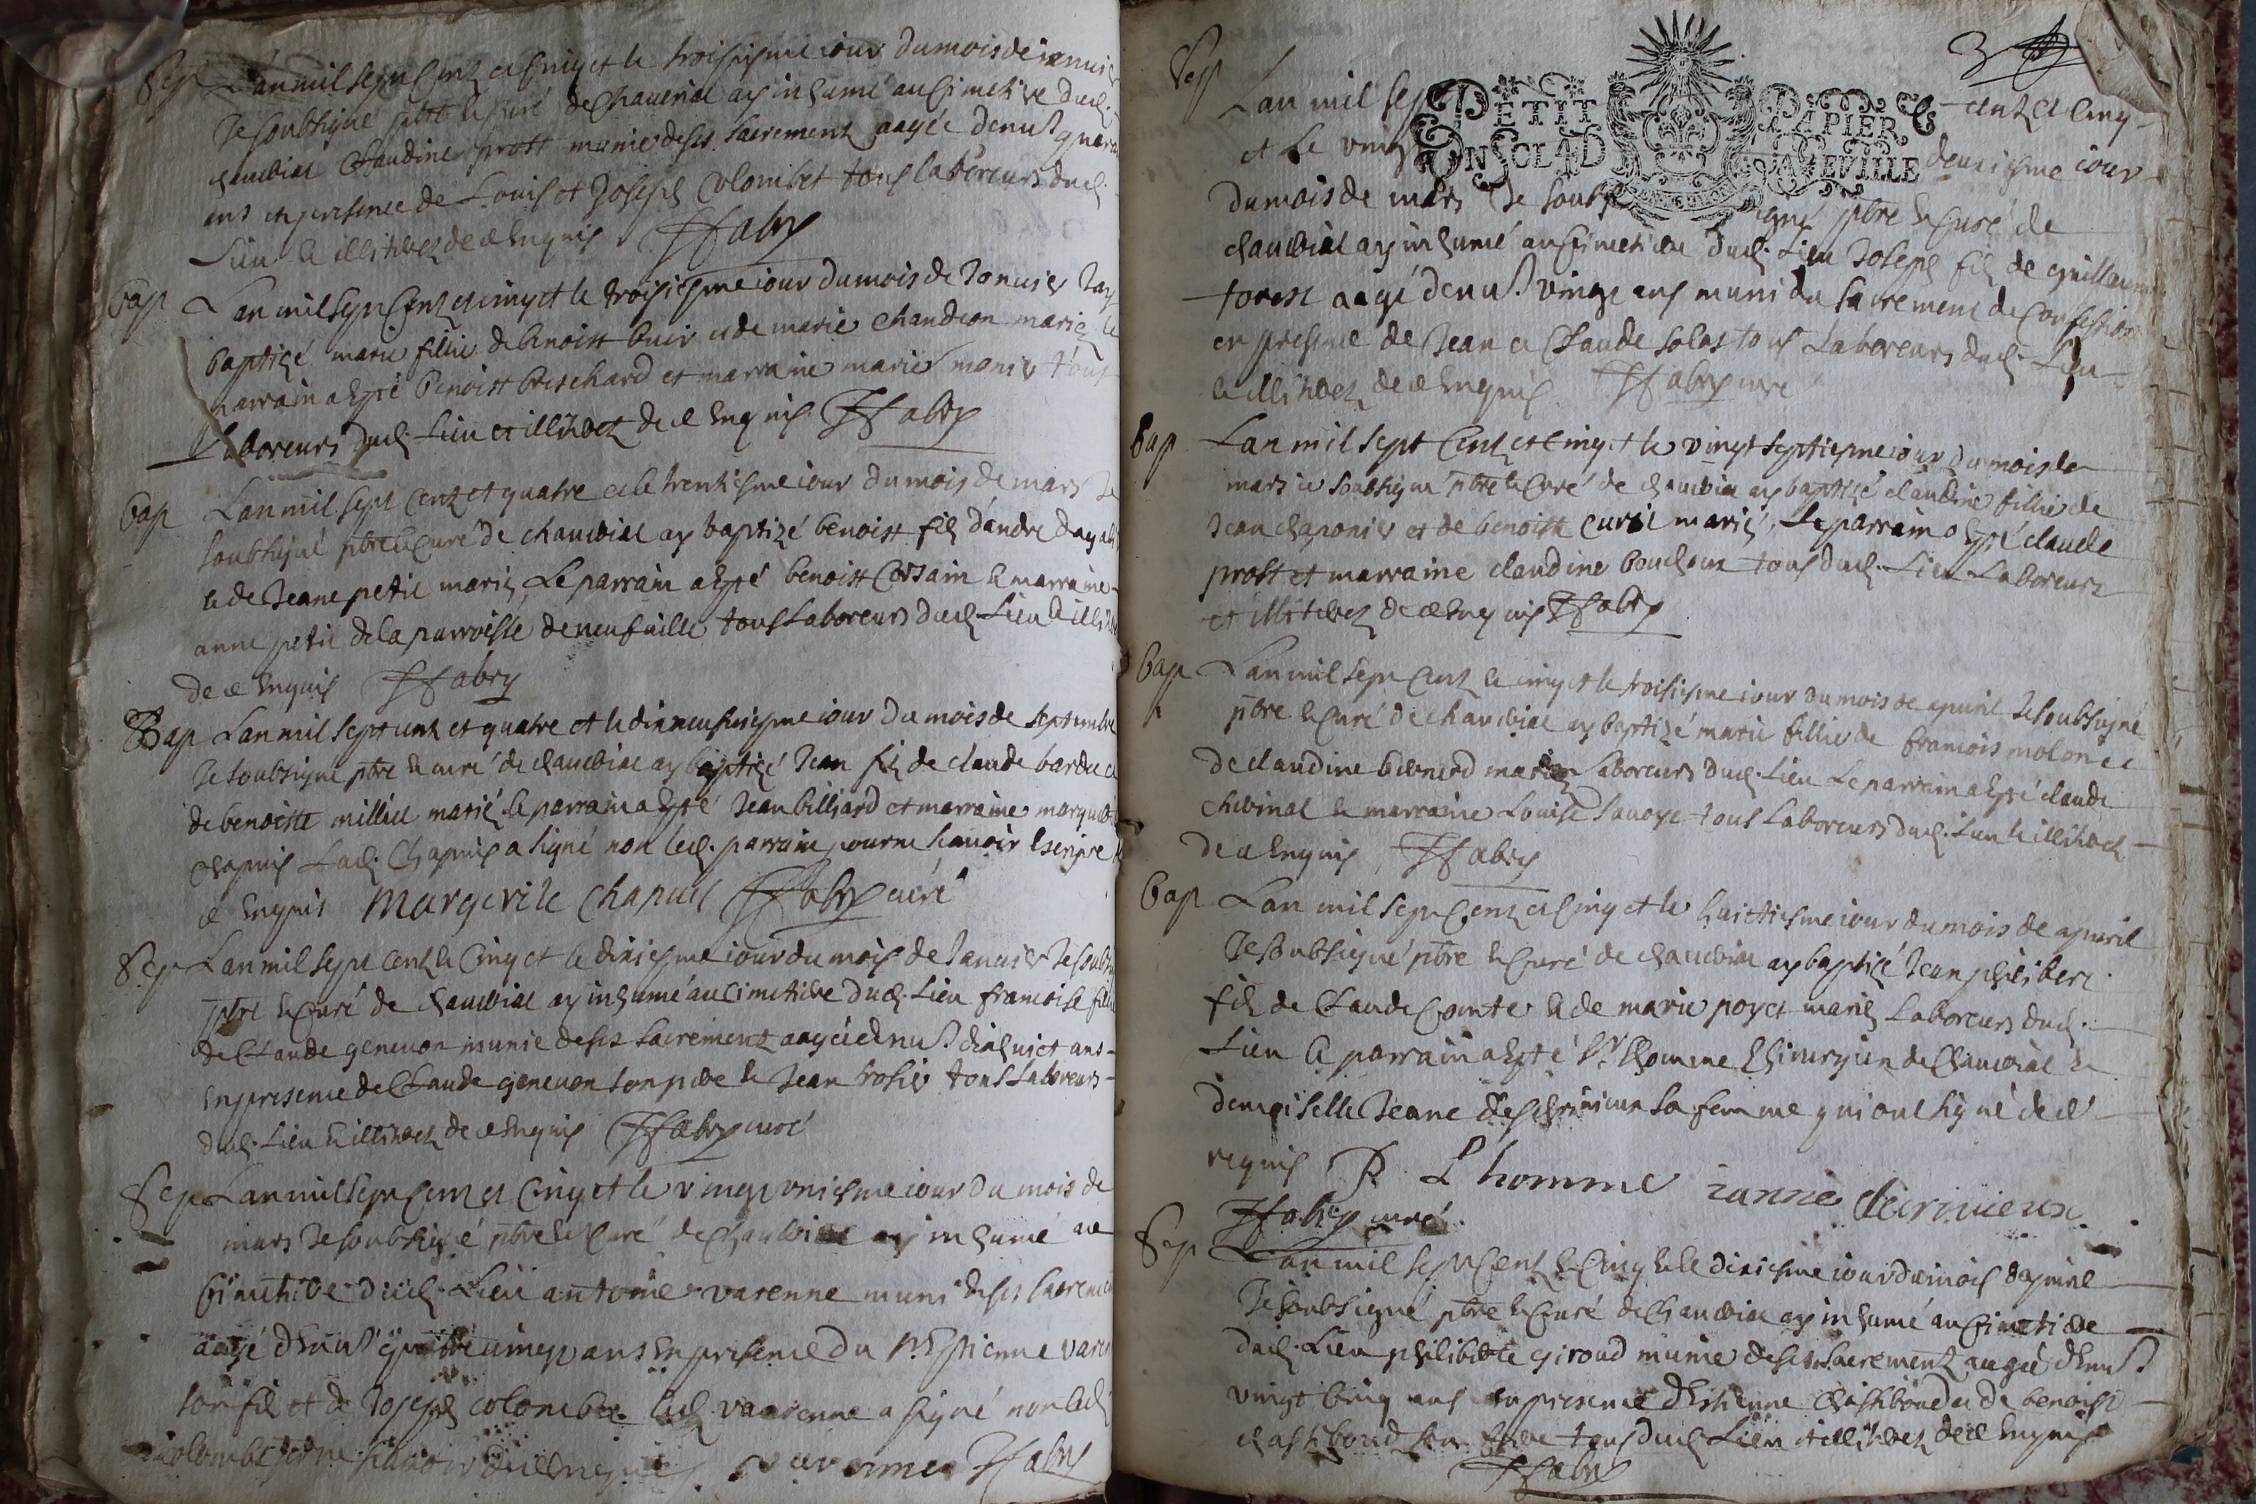 Sep Lan mil sept cent et cinq et le troisiesme iour du mois de ianuier
Je soubsigné pbre et curé de chauerial ay inhumé au cimetiere dud.
Claudine prost munie de ses sacrement aagée denui.
ans en presence de Louis et Joseph Colombet tous laboreurs dud.
Lieu et illiterez de ce enquis FFabry
Bap Lan mil sept cent et cinq et le troisiesme iour du mois de Januier Jay
baptizé marie fillie de benoist buir et de marie chandion mariez le
parrain a esté benoist brischard et marraine marie monier tous
Laboreurs dud. Lieu et illiterez de ce enquis FFabry
bap Lan mil sept cent et quatre et le trentiesme iour du mois de mars Je
soubsigné pbre et curé de chauerial ay baptizé benoist fils d'andre
et de Jeane petit mariez, Le parrain a esté benoist Corsain et marraine
anne petit de la parroisse de neufuille tous Laboreurs dud. Lieu et
de ce enquis FFabry
Bap Lan mil sept cent et quatre et le dixneufuiesme iour du mois de septembre
Je soubsigné pbre et curé de chauerial ay baptizé Jean fils de claude bardu
de benoiste millie mariez le parrain a esté Jean billiard et marraine
chapuis Lad. Chapuis a signé non led. parrain pour ne scauoir escripre
ce enquis Margerite Chapuis FFabry curé
Sep Lan mil sept cent et cinq et le dixiesme iour du mois de Januier Je
pbre et curé de chauerial ay inhumé au cimetiere dud. Lieu francoise fillie
de Claude geneuon munie de ses sacrement aagée denui. dixhuict ans
en presence de Claude geneuon son pere et Jean trosier tous Laboreurs
dud. Lieu et illiterez de ce enquis FFabry curé
Sep Lan mil sept cent et cinq et le vingt vniesme iour du mois de
mars Je soubsigné pbre et curé de Chauerial ay inhumé au
cimetiere dud. Lieu antoine varenne muni de ses sacrement
aagé denui. quatre vingt ans en presence du Sr. Estienne
son fils et de Joseph colombet. Led. varenne a signé non led.
colombet pour ne scauoir de ce enquis varenne FFabry
3
PETIT PAPIER
ONSCLAD AVEVILLE
Sep Lan mil sept cent et cinq
et Le vingt deuxiesme iour
du mois de mars Je soubsigné pbre et curé de
chauerial ay inhumé au cimetiere dud. Lieu Joseph fils de guillaume
forest aagé denui. vingt ans muni du sacrement de confession
en presence de Jean et Claude solas tous Laboreurs dud. Lieu
et illiterez de ce enquis FFabry curé
Bap Lan mil sept cent et cinq et le vingt septiesme iour du mois de
mars ie soubsigné pbre et curé de chauerial ay baptizé claudine fillie de
Jean chaponier et de benoiste curil mariez, Le parrain a esté claude
prost et marraine claudine bouchoux tous dud. Lieu Laboreurs
et illiterez de ce enquis FFabry
bap Lan mil sept cent et cinq et le troisiesme iour du mois de apuril Je soubsigné
pbre et curé de chauerial ay baptizé marie fillie de francois molon et
de claudine bernard mariez Laboreurs dud. Lieu Le parrain a esté claude
cheuinal et marraine Louise sauoye tous Laboreurs dud. Lieu et illiterez
de ce enquis, FFabry
bap Lan mil sept cent et cinq et le huictiesme iour du mois de apuril
Je soubsigné pbre et curé de chauerial ay baptizé Jean philibert
fils de Claude Comte et de marie poyet mariez Laboreurs dud.
Lieu le parrain a esté Sr. Lhomme Chirurgien de Chauerial et
demoiselle Jeane descriuieux sa femme qui ont signé de ce
requis P. L'homme ianne decriuieux
FFabry curé.
Sep Lan mil sept cent et cinq et le dixiesme iour du mois d'apuril
Je soubsigné pbre et curé de chauerial ay inhumé au cimetiere
dud. Lieu philiberte giroud munie de ses sacrement aagée denui.
vingt cinq ans en presence d'Estienne Chastiboud et de benoist
chastiboud son frere tous dud. Lieu et illiterez de ce enquis
FFabry